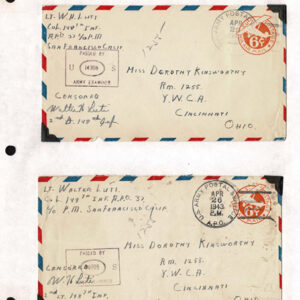 LT. W.H. LUTI
Co L 148th INF.
A.P.O. 37 % P.M
SAN FRANCISCO CALIF
PASSED BY
U S
ARMY EXAMINER
CENSORED
Walter H Luti
2nd Lt. 148th Inf
U.S. ARMY POSTAL
APR
6¢
MISS DOROTHY KINSWORTHY
RM. 1255.
Y.W.C.A.
CINCINNATI
OHIO.
LT. WALTER LUTI.
CO. L 148TH INF. A.P.O. 37
c/o P.M. SAN FRANCISCO CALIF.
U.S. ARMY POSTAL SERVICE
APR
26
1943
P.M.
A.P.O.
6¢
PASSED BY
CENSORED
W. H Luti
2nd LT. 148th INF.
MISS DOROTHY KINSWORTHY
RM. 1255.
Y.W.C.A.
CINCINNATI
OHIO